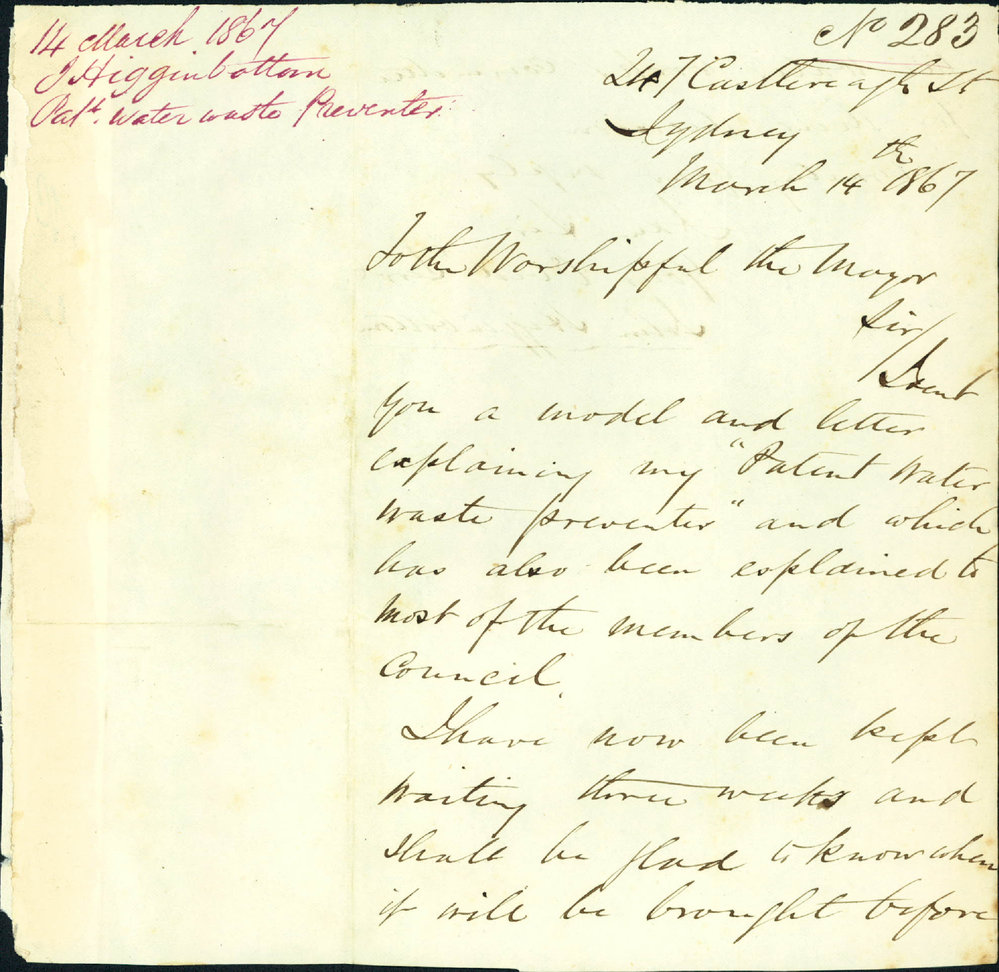 14 March 1867
J Higginbottom
Patt. water waste Preventer.
No 283
247 Castlereagh St
Sydney
March 14th 1867
To the Worshipful the Mayor
Sir/
I sent
you a model and letter
explaining my "Patent water
waste preventer" and which
has also been explained to
most of the members of the
Council.
I have now been kept
waiting three weeks and
shall be glad to know when
it will be brought before